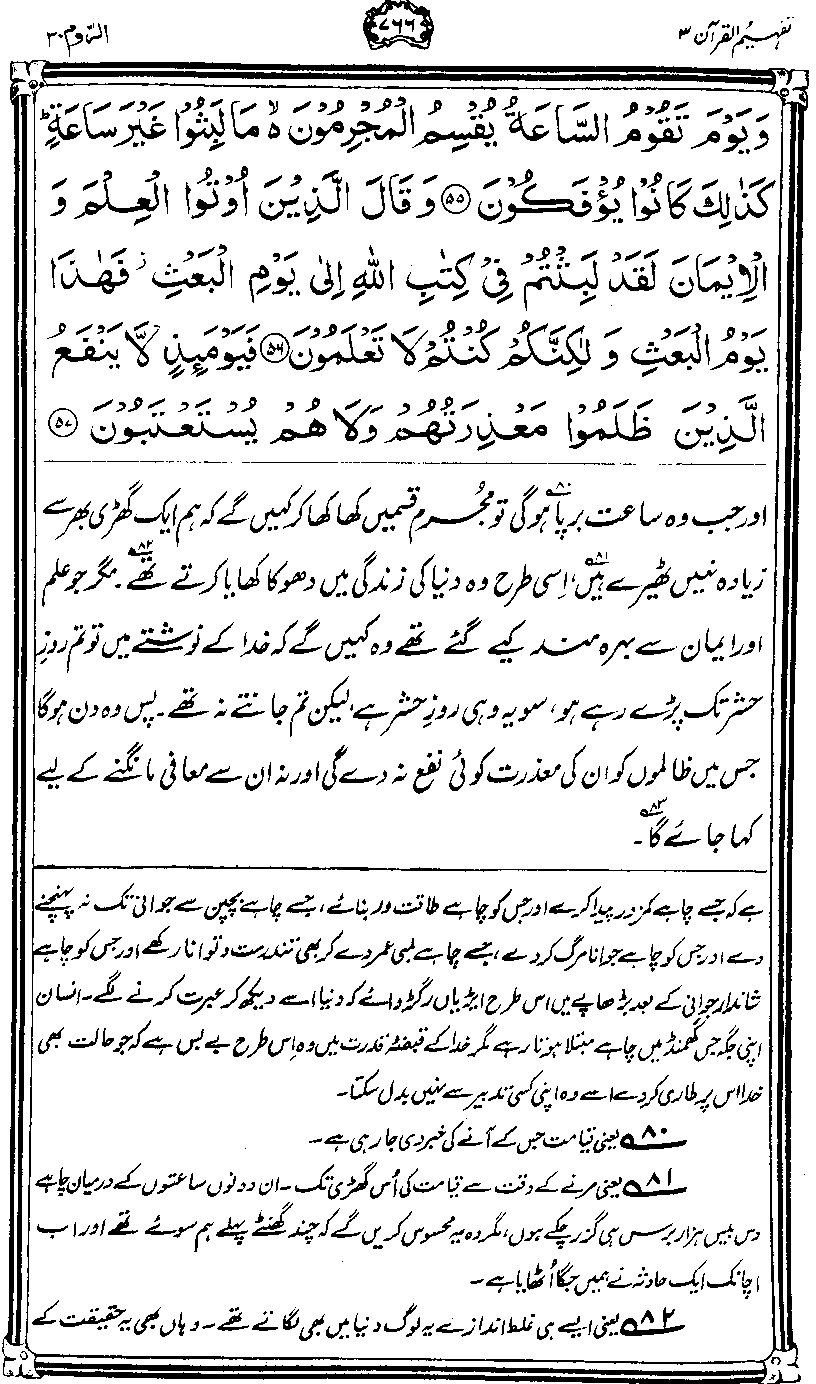 تفہیم القرآن ۳
۷۶۶
الرّوم ۳۰
وَيَوْمَ تَقُوْمُ السَّاعَةُ يُقْسِمُ الْمُجْرِمُوْنَ ۙ مَا لَبِثُوْا غَيْرَ سَاعَةٍ ؕ
كَذٰلِكَ كَانُوْا يُؤْفَكُوْنَ ﴿۵۵﴾ وَقَالَ الَّذِيْنَ اُوْتُوا الْعِلْمَ وَ
الْاِيْمَانَ لَقَدْ لَبِثْتُمْ فِيْ كِتٰبِ اللّٰهِ اِلٰى يَوْمِ الْبَعْثِ ؗ فَهٰذَا
يَوْمُ الْبَعْثِ وَلٰكِنَّكُمْ كُنْتُمْ لَا تَعْلَمُوْنَ ﴿۵۶﴾ فَيَوْمَئِذٍ لَّا يَنْفَعُ
الَّذِيْنَ ظَلَمُوْا مَعْذِرَتُهُمْ وَلَا هُمْ يُسْتَعْتَبُوْنَ ﴿۵۷﴾
اور جب وہ ساعت برپا ہوگی۸۰ تو مجرم قسمیں کھا کھا کر کہیں گے کہ ہم ایک گھڑی بھر سے
زیادہ نہیں ٹھیرے ہیں،۸۱ اِسی طرح وہ دنیا کی زندگی میں دھوکا کھایا کرتے تھے۸۲۔ مگر جو علم
اور ایمان سے بہرہ مند کیے گئے تھے وہ کہیں گے کہ خدا کے نوشتے میں تو تم روزِ
حشر تک پڑے رہے ہو، سو یہ وہی روزِ حشر ہے، لیکن تم جانتے نہ تھے۔ پس وہ دن ہوگا
جس میں ظالموں کو ان کی معذرت کوئی نفع نہ دے گی اور نہ ان سے معافی مانگنے کے لیے
کہا جائے گا۸۳۔
ہے کہ جسے چاہے کمزور پیدا کرے اور جس کو چاہے طاقت ور بنائے، جسے چاہے بچپن سے جوانی تک نہ پہنچنے
دے اور جس کو چاہے جوانا مرگ کر دے، جسے چاہے لمبی عمر دے کر بھی تندرست و توانا رکھے اور جس کو چاہے
شاندار جوانی کے بعد بڑھاپے میں اس طرح ایڑیاں رگڑوائے کہ دنیا اسے دیکھ کر عبرت کرنے لگے۔ انسان
اپنی جگہ جس گھمنڈ میں چاہے مبتلا ہوتا رہے مگر خدا کے قبضۂ قدرت میں وہ اِس طرح بے بس ہے کہ جو حالت بھی
خدا اس پر طاری کر دے اسے وہ اپنی کسی تدبیر سے نہیں بدل سکتا۔
۸۰ یعنی قیامت جس کے آنے کی خبر دی جا رہی ہے۔
۸۱ یعنی مرنے کے وقت سے قیامت کی اُس گھڑی تک۔ ان دونوں ساعتوں کے درمیان چاہے
دس بیس ہزار برس ہی گزر چکے ہوں، مگر وہ یہ محسوس کریں گے کہ چند گھنٹے پہلے ہم سوئے تھے اور اب
اچانک ایک حادثہ نے ہمیں جگا اُٹھایا ہے۔
۸۲ یعنی ایسے ہی غلط اندازے یہ لوگ دنیا میں بھی لگاتے تھے۔ وہاں بھی یہ حقیقت کے